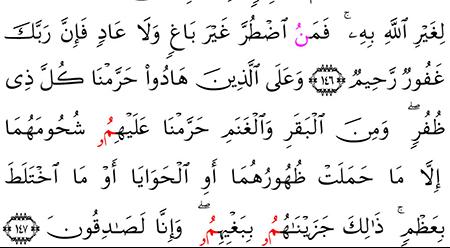 لِغَيْرِ ٱللَّهِ بِهِۦۚ فَمَنُ ٱضْطُرَّ غَيْرَ بَاغٍ وَلَا عَادٍ فَإِنَّ رَبَّكَ
غَفُورٌ رَّحِيمٌ ﴿١٤٦﴾ وَعَلَى ٱلَّذِينَ هَادُواْ حَرَّمْنَا كُلَّ ذِى
ظُفُرٍۖ وَمِنَ ٱلْبَقَرِ وَٱلْغَنَمِ حَرَّمْنَا عَلَيْهِمُۥ شُحُومَهُمَا
إِلَّا مَا حَمَلَتْ ظُهُورُهُمَا أَوِ ٱلْحَوَايَا أَوْ مَا ٱخْتَلَطَ
بِعَظْمٍۚ ذَٰلِكَ جَزَيْنَٰهُمُۥ بِبَغْيِهِمُۥۖ وَإِنَّا لَصَٰدِقُونَ ﴿١٤٧﴾